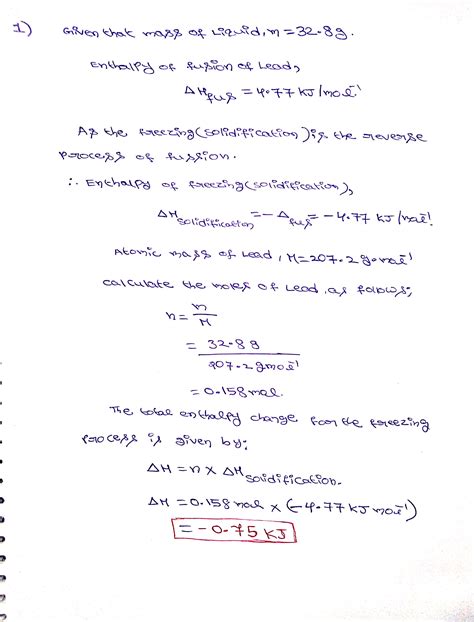 1) Given that mass of Liquid, m = 32.8g.
Enthalpy of fusion of Lead,
ΔHfus = 4.77 KJ/mol⁻¹
As the freezing (solidification) is the reverse
process of fussion.
∴ Enthalpy of freezing (solidification),
ΔHsolidification = -Δfus = -4.77 KJ/mol⁻¹.
Atomic mass of Lead, M = 207.2 g·mol⁻¹
calculate the moles of Lead, as follows;
n = m/M
= 32.8 g
207.2 gmol⁻¹
= 0.158 mol.
The total enthalpy change for the freezing
process is given by:
ΔH = n × ΔHsolidification.
ΔH = 0.158 mol × (-4.77 KJ mol⁻¹)
= -0.75 KJ